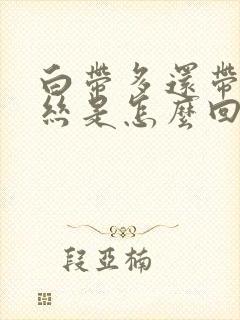 白帶多還帶
絲是怎麼回
段亞楠